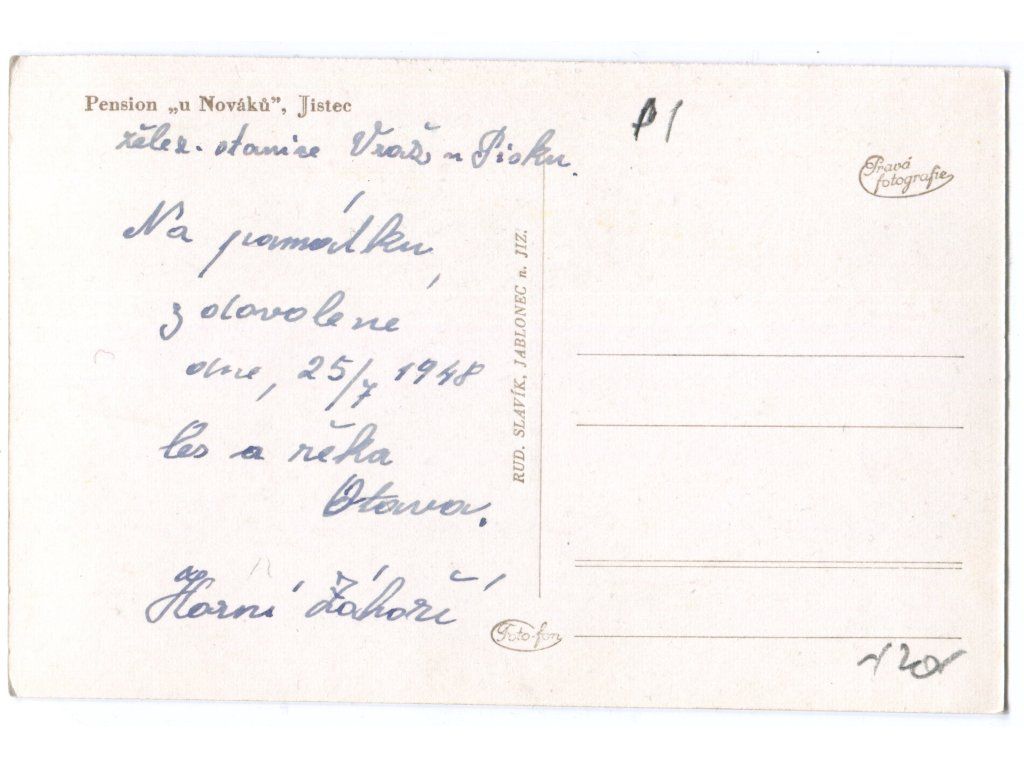 Pension „u Nováků”, Jistec
želez. stanice Vráž u Písku.
Na památku
z dovolené
dne, 25/7 1948
les a řeka
Otava.
Horní Záhoří
RUD. SLAVÍK, JABLONEC n. JIZ.
Foto-fon
Pravá
fotografie